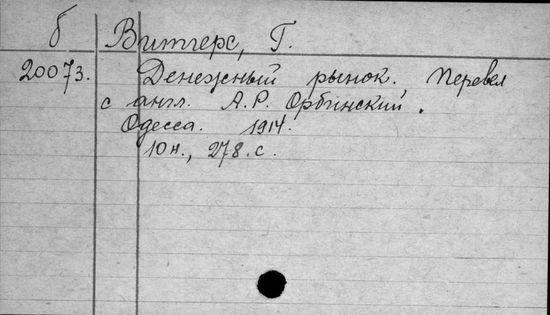 б Витгерс, Г.
20073. Денежный рынок. Перевел
с англ. А.Р. Орбинский.
Одесса. 1914.
10 н., 278 с.